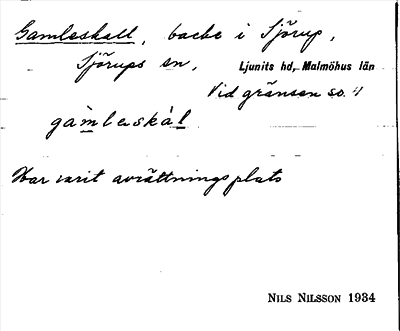 Gamleskall, backe i Sjörup,
Sjörups sn, Ljunits hd, Malmöhus län
Vid gränsen so.
gàmleskál
Har varit avrättningsplats
NILS NILSSON 1934